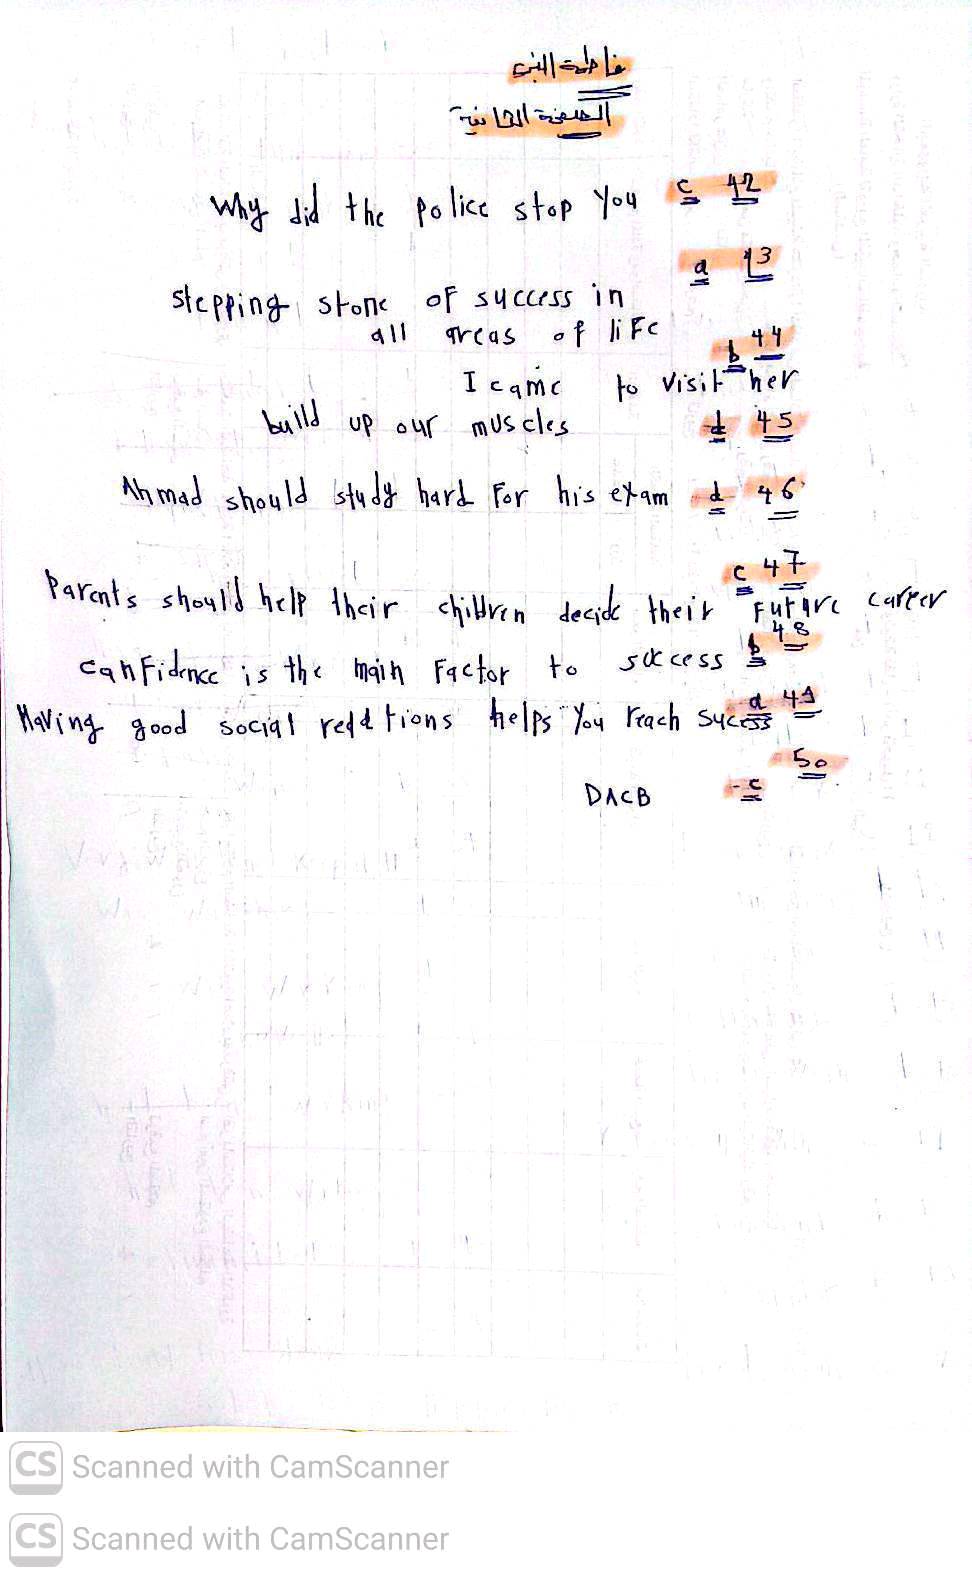 فاطمة
الصفحة الثانية
Why did the police stop you c 42
a 43
stepping stone of success in
all areas of life
b 44
I came to visit her
build up our muscles d 45
Ahmad should study hard for his exam d 46
c 47
Parents should help their children decide their future career
48
canfidence is the main factor to success b
Having good social relations helps you reach sucess a 49
50
DACB c
CS Scanned with CamScanner
CS Scanned with CamScanner